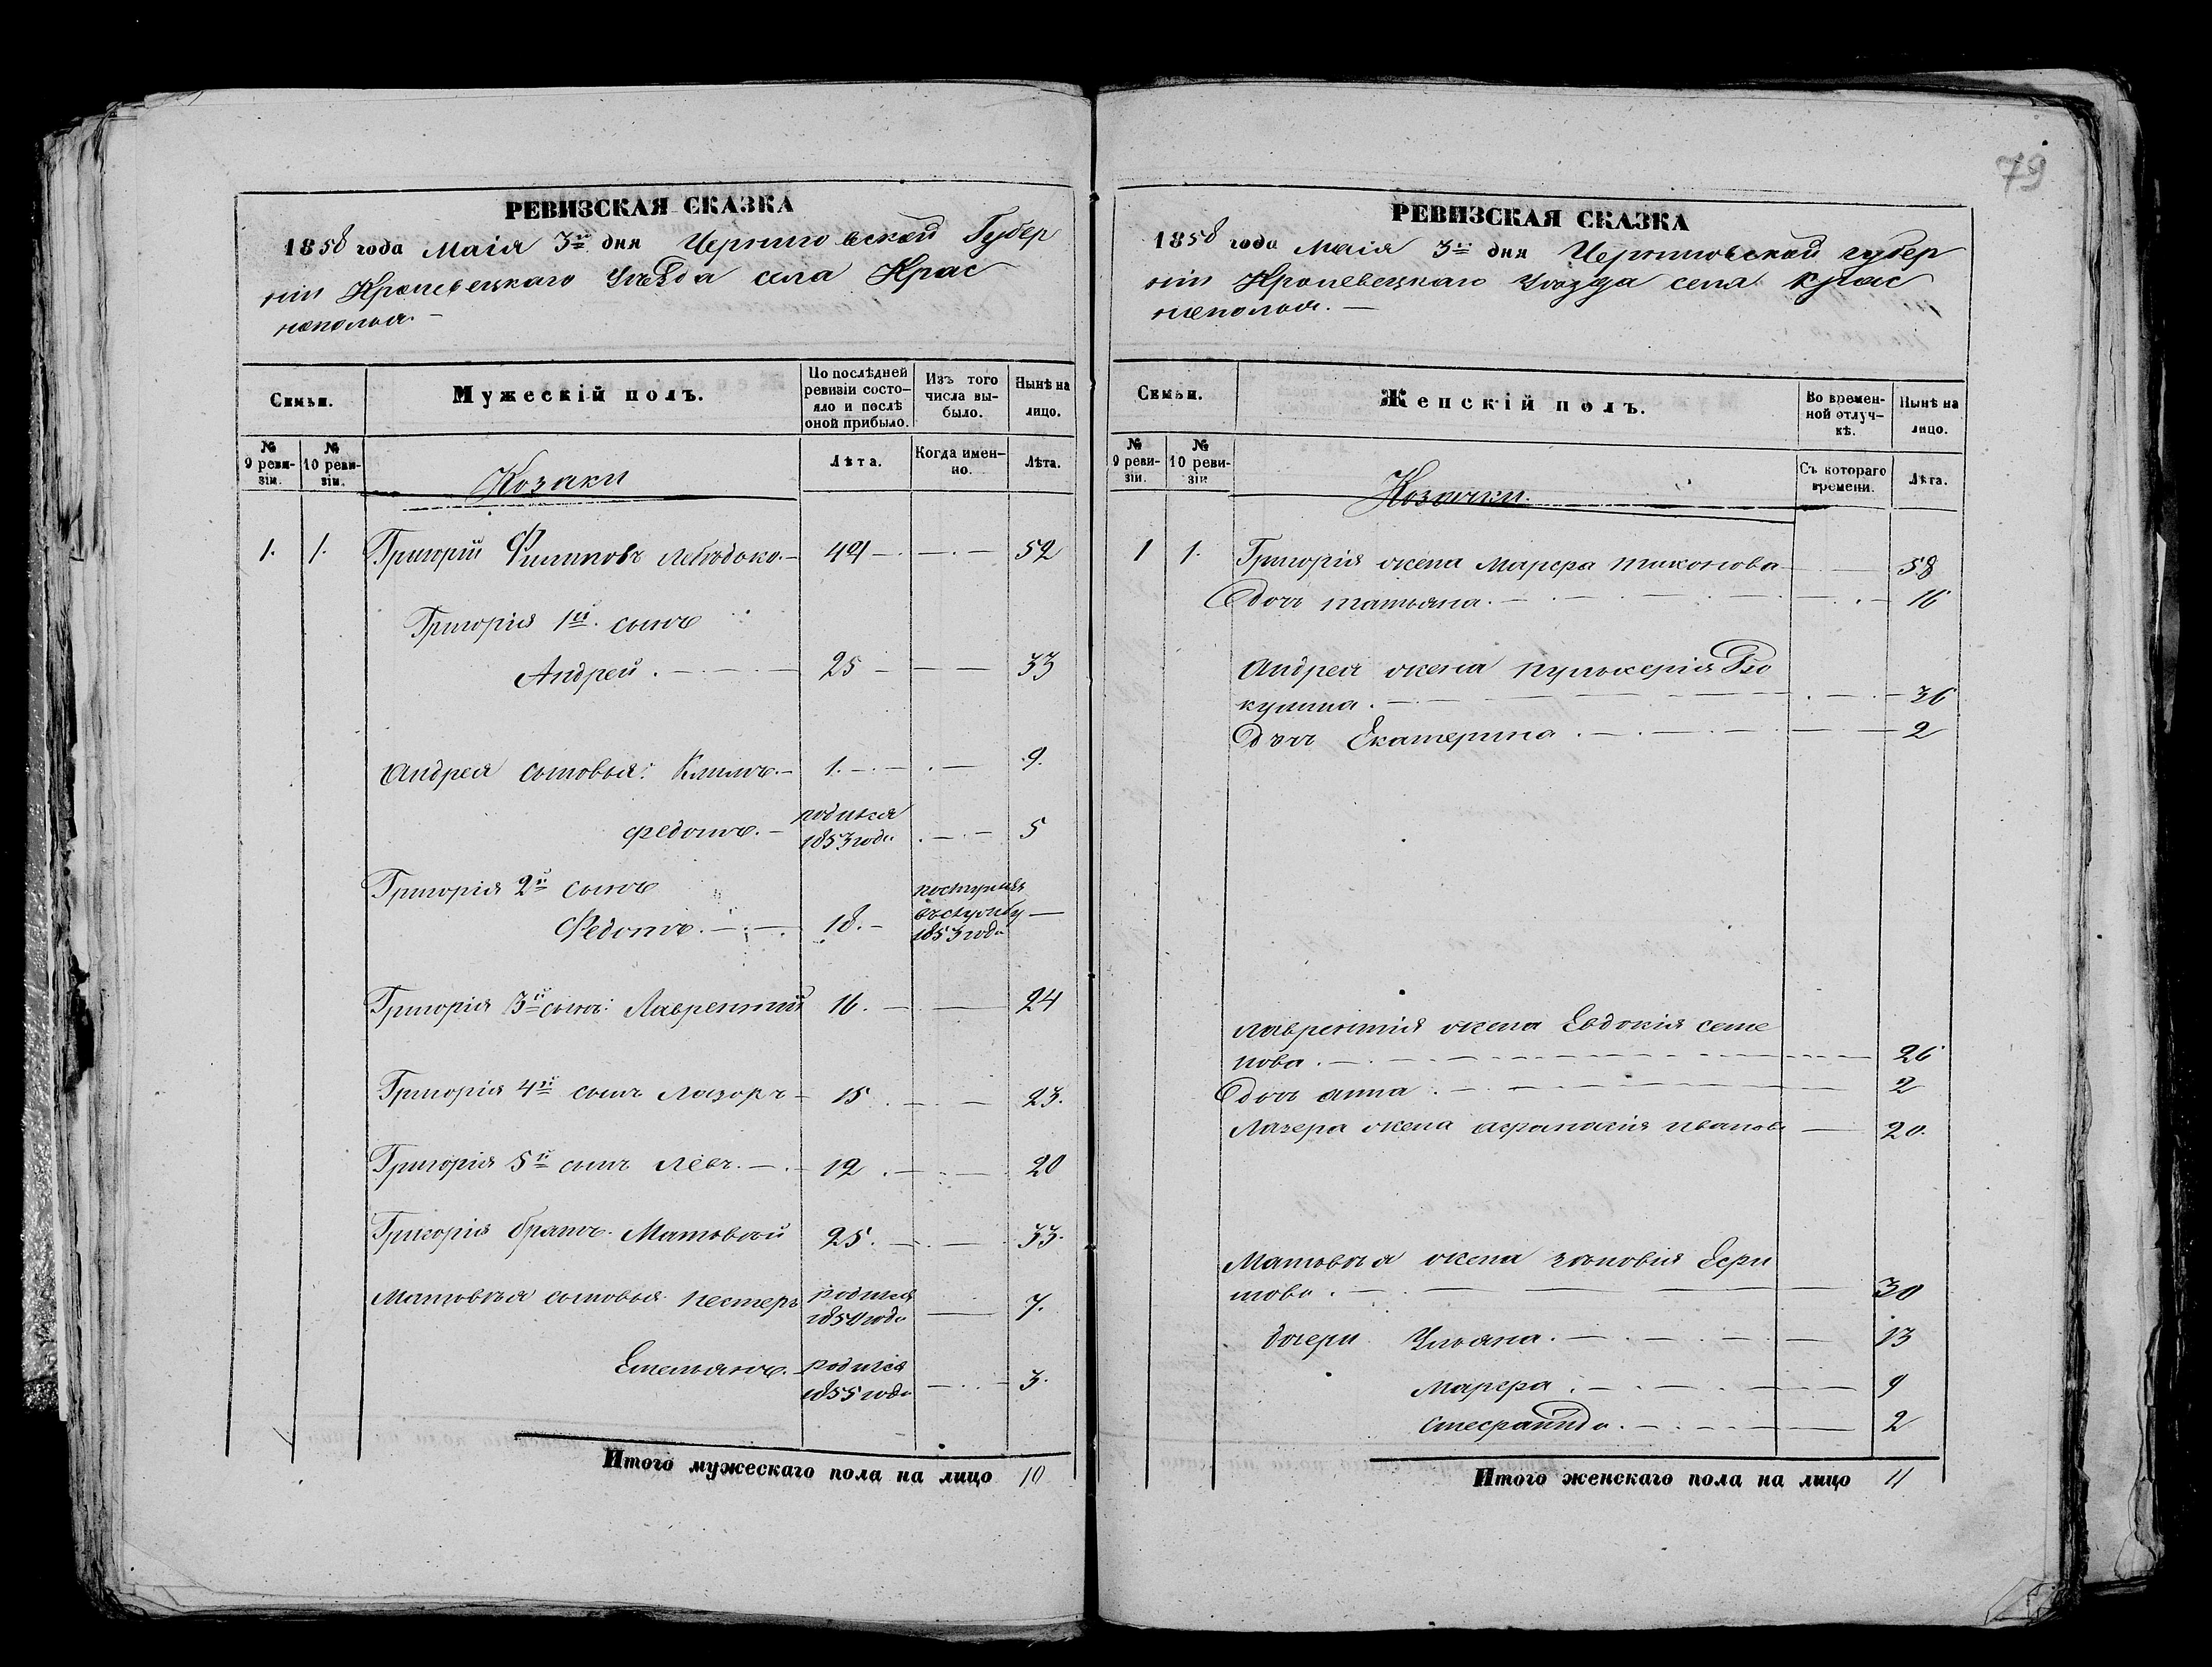 79
РЕВИЗСКАЯ СКАЗКА
1858 года Маія 3го дня Черниговской Губер
ніи Кролевецкаго Уѣзда села Крас
неполья.
Семьи.
Мужескій полъ.
По послѣдней ревизіи состояло и послѣ оной прибыло.
Изъ того числа выбыло.
Нынѣ на лицо.
№ 9 ревизіи.
№ 10 ревизіи.
Козаки
Лѣта.
Когда именно.
Лѣта.
1. 1. Григорій Филиповъ 44 52
Григорія 1й сынъ
Андрей. 25 33
Андрея сыновья: Климъ. 1. 9.
родился
Федотъ. 1853 года 5
Григорія 2й сынъ поступилъ
въ службу
Федотъ. 18. 1853 года
Григорія 3й сынъ: Лаврентий 16. 24
Григорія 4й сынъ Лазоръ 15 23.
Григорія 5й сынъ Левъ. 12 20
Григорія братъ Матвѣй 25. 33.
Матвѣя сыновья Нестеръ родился 7.
1850 года
Емельянъ. родился
1855 года 3.
Итого мужескаго пола на лицо 10
РЕВИЗСКАЯ СКАЗКА
1858 года Маія 3го дня Черниговской губер
ніи Кролевецкаго Уѣзда села Крас
неполья.
Семьи.
Женскій полъ.
Во временной отлучкѣ.
Нынѣ на лицо.
№ 9 ревизіи.
№ 10 ревизіи
Козачки.
Съ котораго времени.
Лѣта.
1 1. Григорія жена Марфа тихонова 58
дочь татьяна. 16
Андрея жена пульхерія
кулина. 36
дочь Екатерина. 2
Лаврентія жена Евдокія семе
нова. 26
дочь анна. 2
Лазера жена афанасия иванов 20.
Матвѣя жена зѣновія Ефи
мова. 30
дочери Ульяна. 13
Марфа. 9
стефанида. 2
Итого женскаго пола на лицо 11